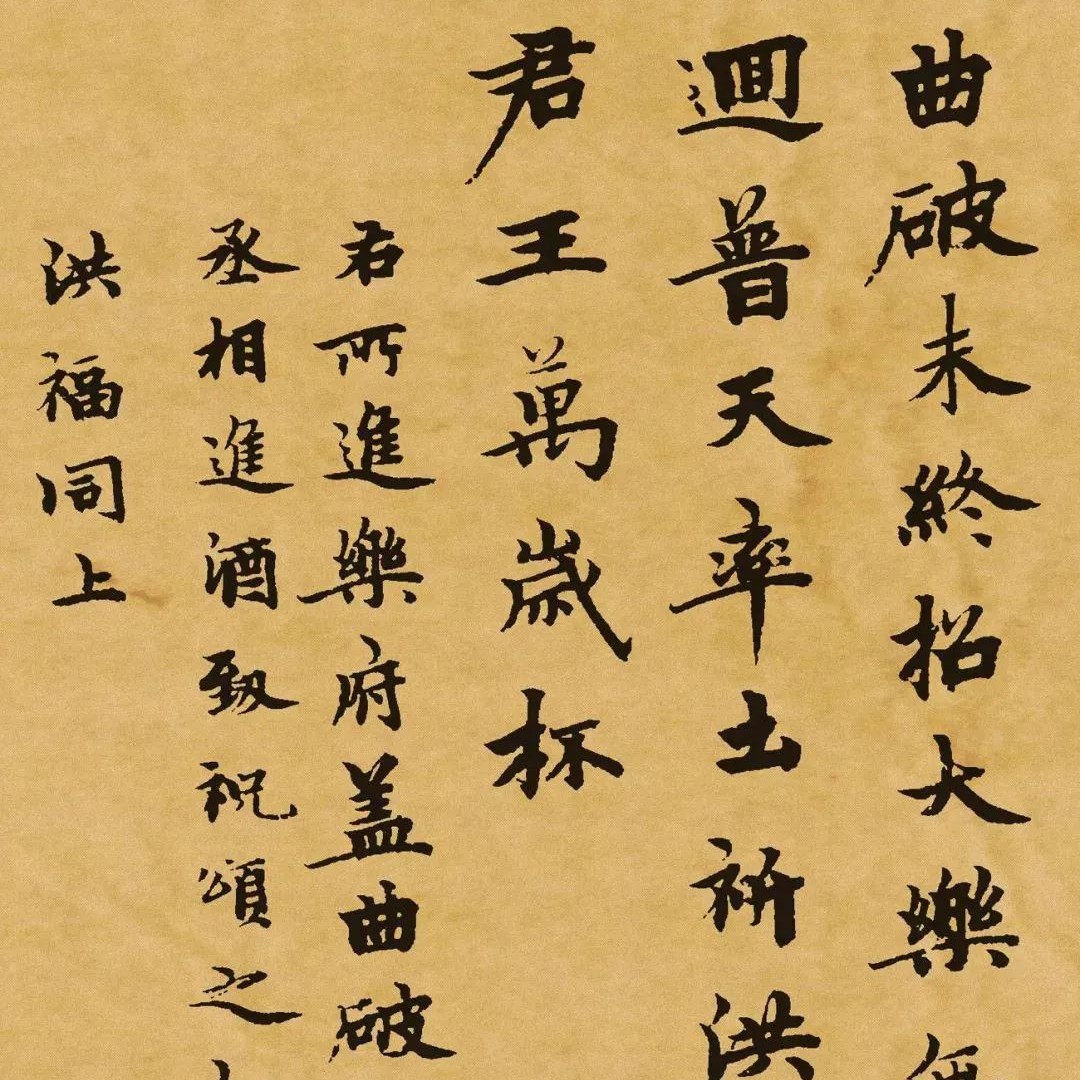 曲破未終招大樂
迴普天率土祈洪
君王萬歲杯
君所進樂府蓋曲破
丞相進酒致祝頌之
洪福同上